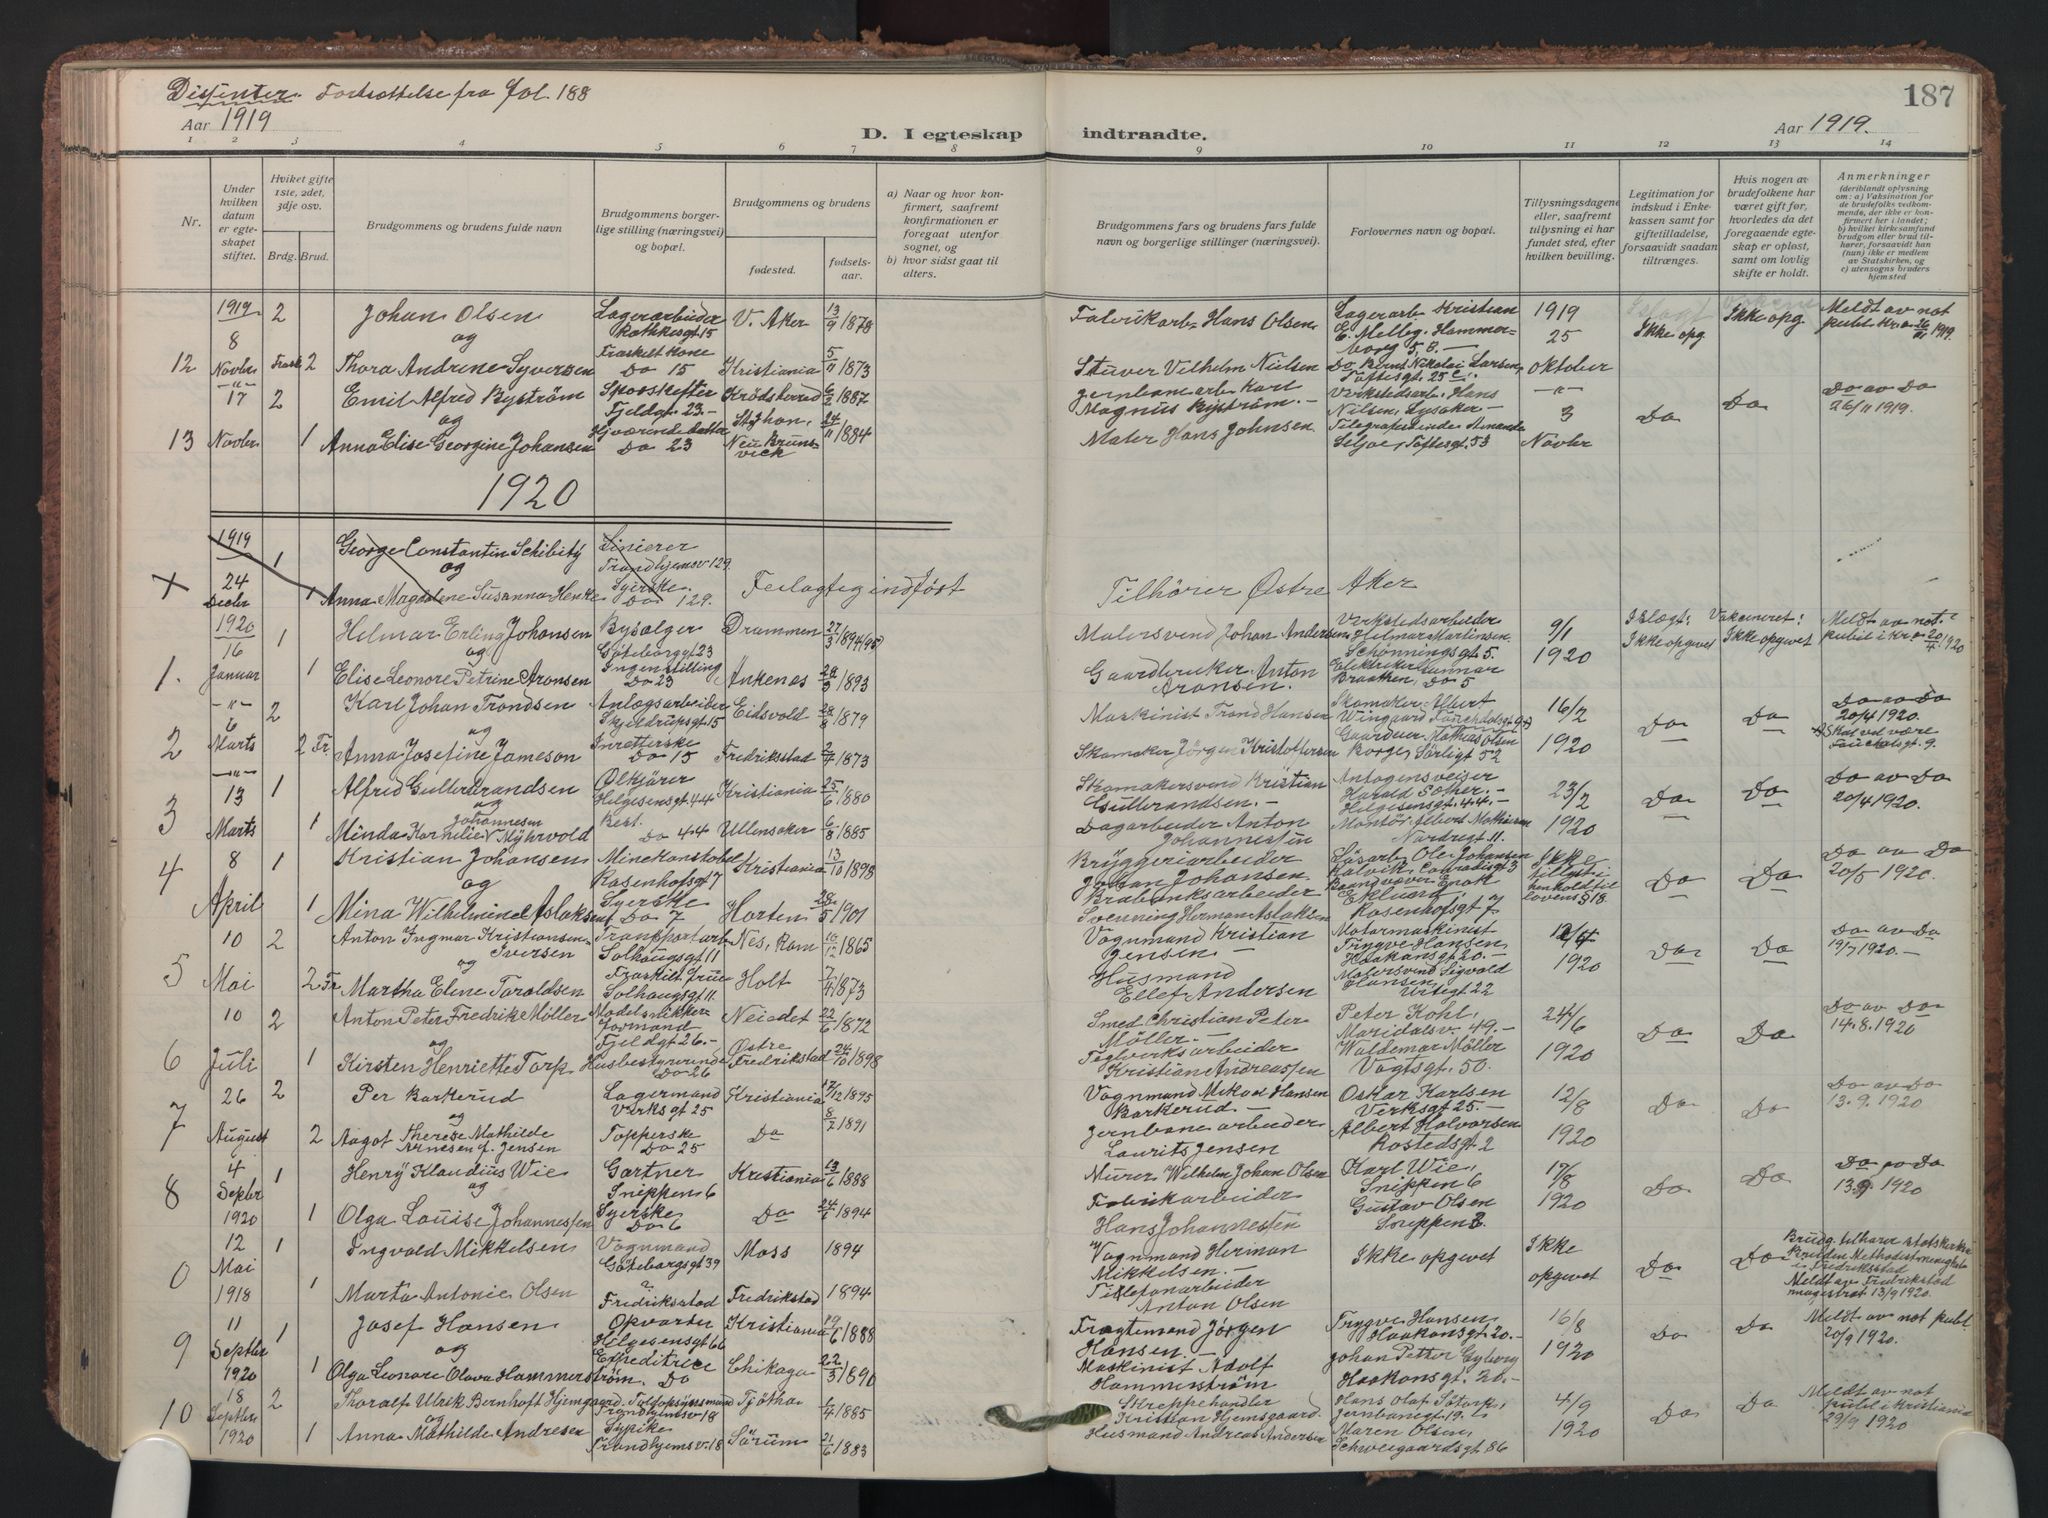 Dissenter. Fortsættelse fra fol. 188
187
Aar 1919
D. I egteskap indtraadte.
Aar 1919.
1 2 3 4 5 6 7 8 9 10 11 12 13 14
Nr.
Under hvilken datum er egteskapet stiftet.
Hvilket gifte 1ste, 2det, 3dje osv.
Brdg. Brud.
Brudgommens og brudens fulde navn
Brudgommens borgerlige stilling (næringsvei) og bopæl.
Brudgommens og brudens
fødested.
fødselsaar.
a) Naar og hvor konfirmert, saafremt konfirmationen er foregaat utenfor sognet, og
b) hvor sidst gaat til alters.
Brudgommens fars og brudens fars fulde navn og borgerlige stillinger (næringsvei).
Forlovernes navn og bopæl.
Tillysningsdagene eller, saafremt tillysning ei har fundet sted, efter hvilken bevilling.
Legitimation for indskud i Enkekassen samt for giftetilladelse, forsaavidt saadan tiltrænges.
Hvis nogen av brudefolkene har været gift før, hvorledes da det foregaaende egteskap er opløst, samt om lovlig skifte er holdt.
Anmerkninger
(deriblandt oplysning om: a) Vaksination for de brudefolks vedkommende, der ikke er konfirmert her i landet; b) hvilket kirkesamfund brudgom eller brud tilhører, forsaavidt han (hun) ikke er medlem av Statskirken, og c) utensogns bruders hjemsted
12 1919 8 Novbr 2 Johan Olsen Lagerarbeider Rathkesgt 15 V. Aker 13/9 1873 Fabrikarb Hans Olsen Lagerarb Kristian E. Melbg. Hammerborg 5, 8. 1919 25 oktober Ikke opg Ikke opg. Meldt av not publ. Kr.a 26/11 1919.
og
2 Thora Andrine Syversen Fraskilt Kone Do 15 Kristiania 5/11 1873 Stuver Vilhelm Nielsen Do Bernt Nikolai Larsen, Toftesgt. 25 c.
13 17 Novbr 2 Emil Alfred Byström Fjeldgt. 23. Krödsherred 6/2 1887 Jernbanearb. Karl Magnus Byström. Verkstedsarb. Hans Nilsen, Lysaker 3 Novbr Do Do Do av Do 26/11 1919.
og
1 Anna Elise Georgine Johansen Do 23 St. Jhon, Neu Brunsvick 24/11 1884 Hans Johnsen Toftesgt. 53
1920
+ 1919 24 Decbr 1 George Constantin Schibity Linierer Trondhjemsv 129.
og Feilagtig indføst Tilhører Østre Aker
1 Anna Magdalene Susanna Henke Syerske Do 129.
1. 1920 16 Januar 1 Hilmar Erling Johansen Bysælger Göteborggt 23 Drammen 27/3 1894(95) Malersvend Johan Andersen Verkstedsarbeider Hilmar Martinsen Schönningsgt 5. 9/1 1920 Ikke opgivet Ikke opgivet Meldt av not. publ i Kr.a 20/4 1920
og
1 Elise Leonore Petrine Aronsen Ingen stilling Do 23 Ankenæs 29/3 1893 Gaardbruker Anton Aronsen. Elektriker Gunnar Braathen, Do 5
2 6 Marts 2 Karl Johan Trondsen Anlægsarbeider Skjeldrupsgt 15 Eidsvold 28/8 1879 Maskinist Trond Hansen Skomaker Albert Wingaard 16/2 1920 Do Do Do av Do 20/4 1920.
og
2 Fr. Anna Josefine Jameson Do 15 Fredrikstad 2/4 1873 Skomaker Jörgen Kristoffersen Gaardeier Mathias Olsen Borge, Sörligt 52
3 13 Marts 1 Alfred Gulbrandsen Ølkjører Helgesensgt. 44 Kristiania 25/6 1880 Skomakersvend Kristian Gulbrandsen. Harald Sæther. Helgesensgt. 44. 23/2 1920 Do Do Do av Do 20/4 1920.
og Johannesen
1 Minda Kornelie Myhrvold Best. Do 44 Ullensaker 6/8 1885 Dagarbeider Anton Johannesen Montör Albert Mathisen Nordregt 11.
4 8 April 1 Kristian Johansen Minekonstabel Rosenhofsgt 7 Kristiania 13/10 1898 Bryggeriarbeider Johan Johansen Ole Johansen Ikke tillyst i henhold til lovens § 18. Do Do Do av Do 20/5 1920.
og
1 Mina Wilhelmine Aslaksen Syerske Do 7 Horten 28/5 1901 Svenning Herman Aslaksen Enok Eklund. Rosenhofsgt 7
5 10 Mai 2 Anton Ingmar Kristiansen Iversen Transportarb Solhaugsgt 11 Nes, Rom. 10/12 1865 Vognmand Kristian Jensen Motormaskinist Trygve Hansen Haakonsgt 20. 1920 Do Do Do av Do 19/7 1920.
og
2 Fr Martha Eline Taraldsen Fraskilt frue Solhaugsgt 11. Holt 7/4 1873 Husmand Ellef Andersen Malersvend Sigvald Urtegt 22
6 10 Juli 2 Anton Peter Fredrik Möller Modelsnikker formand Fjeldgt 26. Neiedet 22/6 1872 Smed Christian Peter Möller. Peter Kohl, Maridalsv. 49. 24/6 1920 Do Do Do av Do 14.8.1920
og
1 Kirsten Henriette Torp Husbestyrerinde Do 26 Østre Fredrikstad 24/10 1898 Teglverksarbeider Kristian Andreassen Waldemar Möller Vogtsgt. 50.
7 26 August 2 Per Barkerud Lagermand Verksgt 25 Kristiania 17/12 1895 Vognmand Mikael Hansen Barkerud. Oskar Karlsen Verksgt 25. 12/8 1920 Do Do Do av Do 13.9.1920
og
2 Aagot Therese Mathilde Arnesen f. Jensen Topperske Do 25 Do 8/2 1891 Jernbanearbeider Laurits Jensen Albert Halvorsen Rostedsgt 2
8 4 Septbr 1920 1 Henry Klaudius Wie Gartner Sneppen 6 Kristiania 13/6 1888 Murer Wilhelm Johan Olsen Karl Wie, Snippen 6 17/8 1920 Do Do Do av Do 13.9.1920
og
1 Olga Louise Johannessen Syerske Do 6 Do 1894 Fabrikarbeider Hans Johannessen Gustav Olsen
0 12 Mai 1918 1 Ingvald Mikkelsen Vognmand Göteborgsgt 39 Moss 1894 Vognmand Herman Mikkelsen. Ikke opgivet Ikke opgivet Do Do Brudg. tilhører statskirken Bruden Methodistmenigheten i Fredriksstad Meldt av Fredrikstad magestrat 13/9 1920.
1 Marta Antonie Olsen ? Fredriksstad Fredrikstad 1894 Anton Olsen
9 11 Septbr 1920 1 Josef Hansen Opvarter Helgesensgt 66 Kristiania 19/6 1888 Fragtemand Jörgen Hansen. Trygve Hansen Haakonsgt 20. 16/8 1920 Do Do Meldt av not publ 20/9 1920.
og
1 Olga Leonore Olava Hammerström. Expeditrice Do Chikago 22/3 1890 Maskinist Adolf Hammerström Johan Petter Haakonsgt. 20.
10 18 Septbr 1920 2 Thoralf Ulrik Bernhoft Hjemgaard Toldopsynsmand Trondhjemsv 18 Tjøtha 6/4 1885 Skreppehandler Kristian Hjemsgaard. Hans Olaf Jernbanegt 19. 4/9 1920 Do Do Meldt av not publ i Kristiania 29/9 1920
og
1 Anna Mathilde Andresen Sypike Trondhjemsv. 18 Sörum 21/6 1883 Husmand Andreas Andersen Maren Olsen, Schweigaardsgt 86